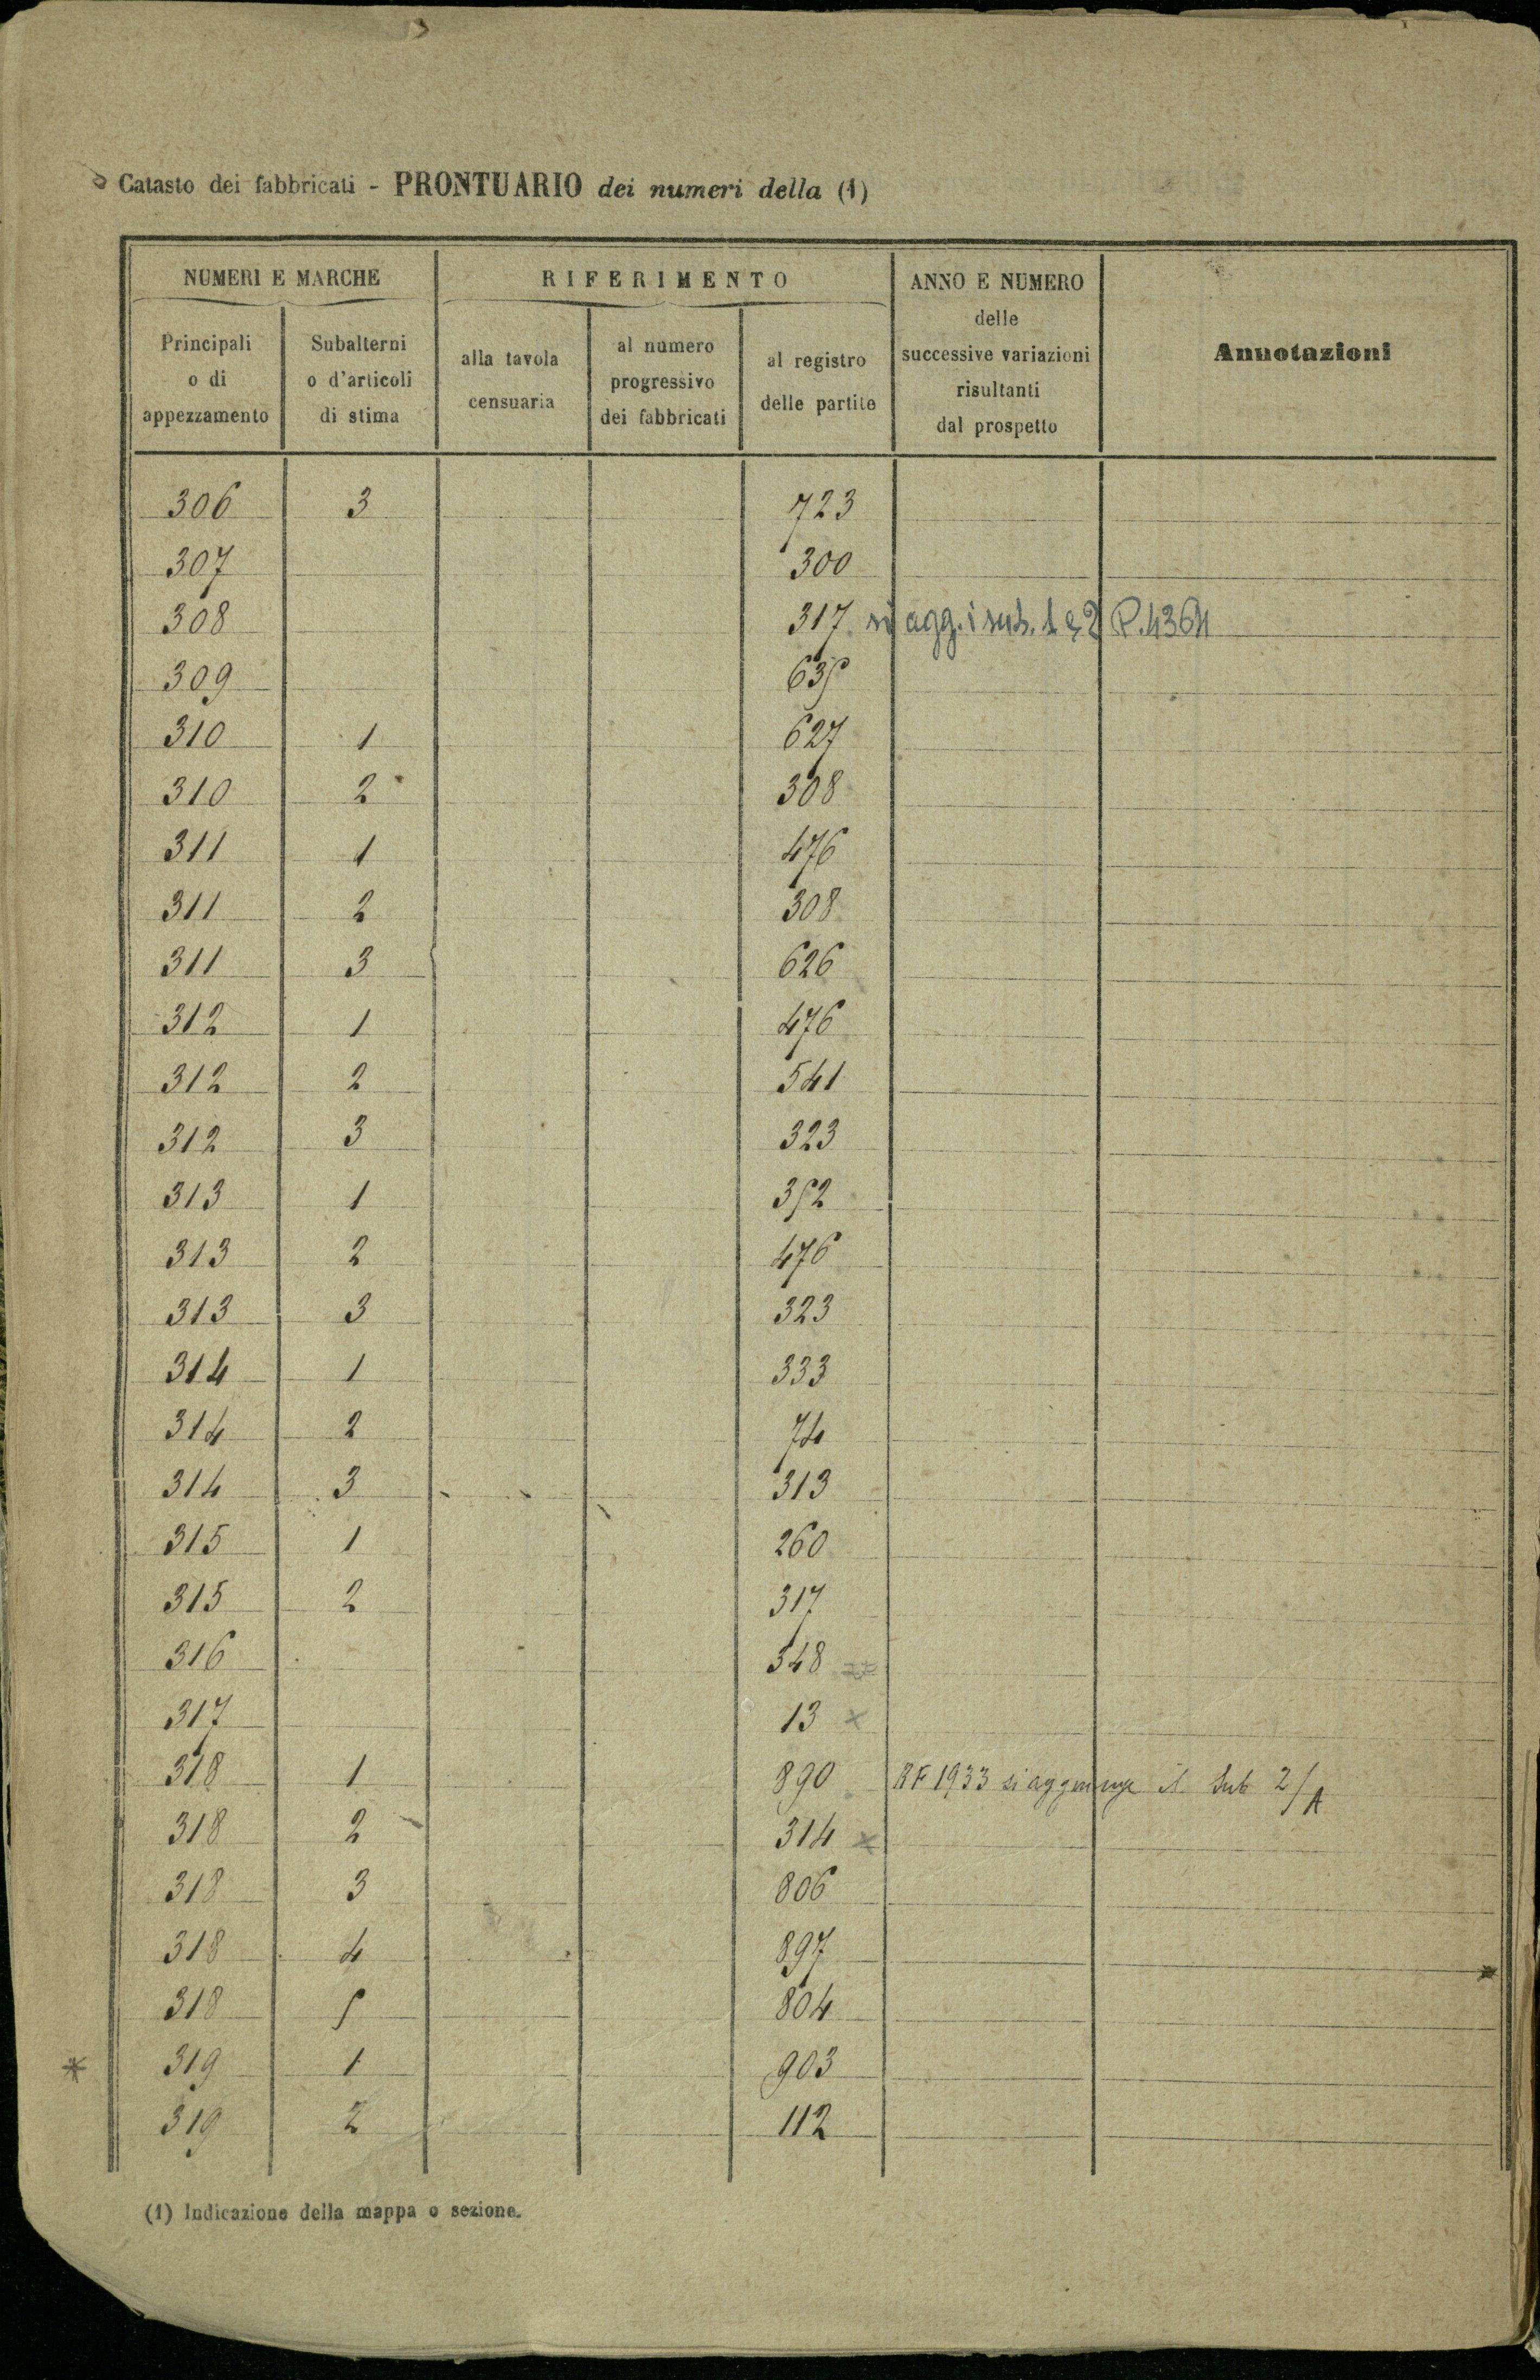 Catasto dei fabbricati - PRONTUARIO dei numeri della (1)
NUMERI E MARCHE RIFERIMENTO ANNO E NUMERO delle successive variazioni risultanti dal prospetto Annotazioni
Principali o di appezzamento Subalterni o d'articoli di stima alla tavola censuaria al numero progressivo dei fabbricati al registro delle partite
306 3 723
307 300
308 317 si agg. i sub. 1 e 2 P. 4364
309 635
310 1 627
310 2 308
311 1 476
311 2 308
311 3 626
312 1 476
312 2 541
312 3 323
313 1 352
313 2 476
313 3 323
314 1 333
314 2 74
314 3 313
315 1 260
315 2 317
316 348
317 13 x
318 1 890 RF 1933 si aggiunge il Sub 2/A
318 2 314 x
318 3 806
318 4 897
318 5 804
* 319 1 903
319 2 112
(1) Indicazione della mappa o sezione.